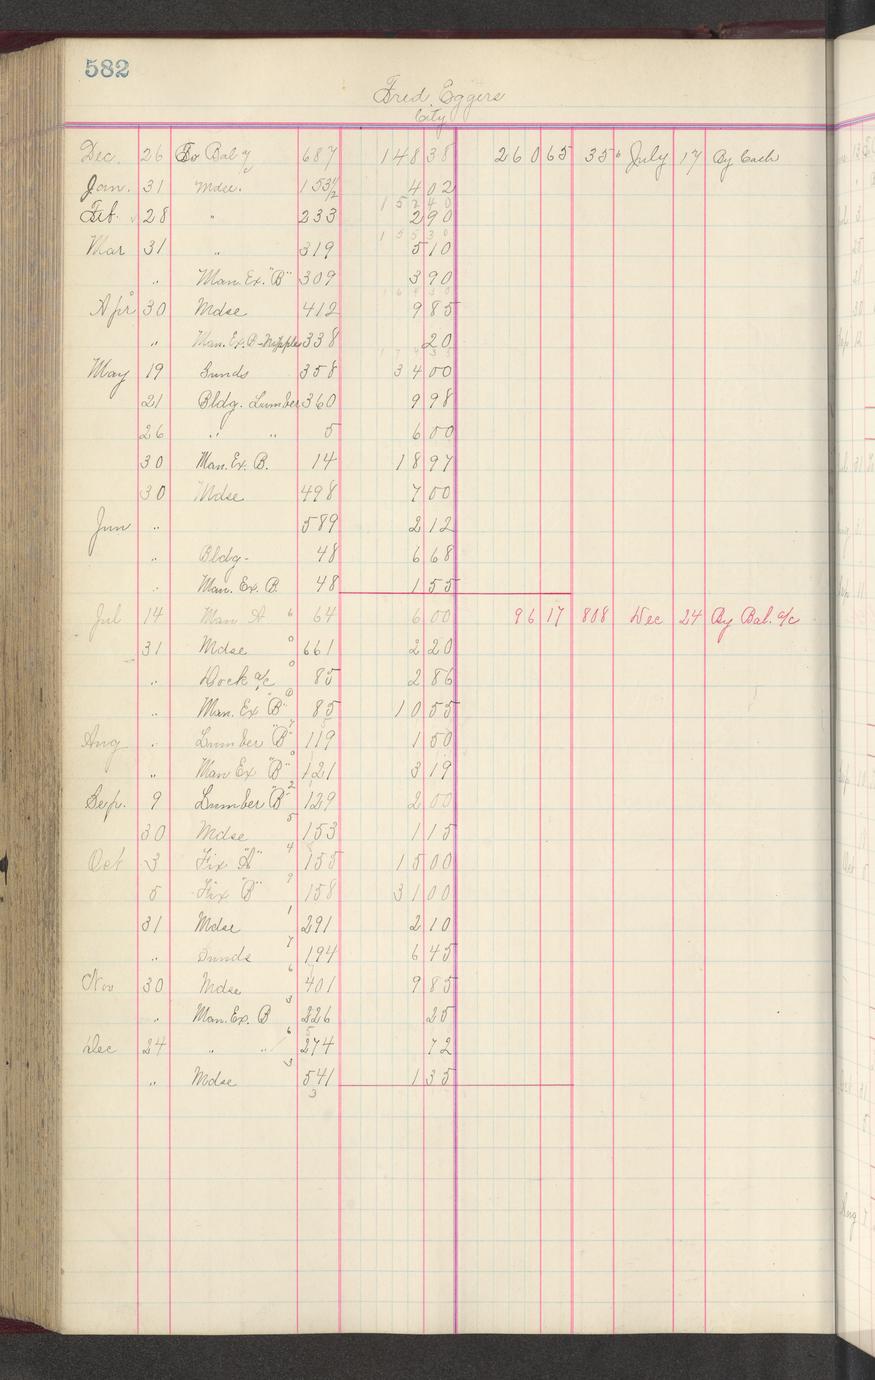 582
Fred Eggers
City
Dec. 26 To Bal 687 148 38 260 65 356 July 17 By Cash
Jan. 31 Mdse. 153 1/2 4 02
152 40
Feb. 28 " 233 2 90
155 30
Mar 31 " 319 5 10
" Man. Ex. "B" 309 3 90
Apr 30 Mdse 412 9 85
" Man. Ex. B-Nipples 338 20
May 19 Sunds 358 34 00
21 Bldg. Lumber 360 9 98
26 " " 5 6 00
30 Man. Ex. B. 14 18 97
30 Mdse 498 7 00
Jun " 589 2 12
" Bldg- 48 6 68
" Man. Ex. B. 48 1 55
Jul 14 Man A 6 64 6 00 96 17 808 Dec 24 By Bal. a/c
31 Mdse 0 661 2 20
" Dock a/c 0 85 2 86
" Man. Ex "B" 85 10 55
Aug " Lumber "B" 7 119 1 50
" Man Ex "B" 0 121 3 19
Sep. 9 Lumber "B" 2 129 2 00
30 Mdse 5 153 1 15
Oct 3 Fix "A" 4 155 15 00
5 Fix "B" 9 158 31 00
31 Mdse 1 291 2 10
" Sunds 7 194 6 45
Nov 30 Mdse 6 401 9 85
" Man. Ex. B 3 226 25
Dec 24 " " 6 274 72
" Mdse 3 541 1 35
3